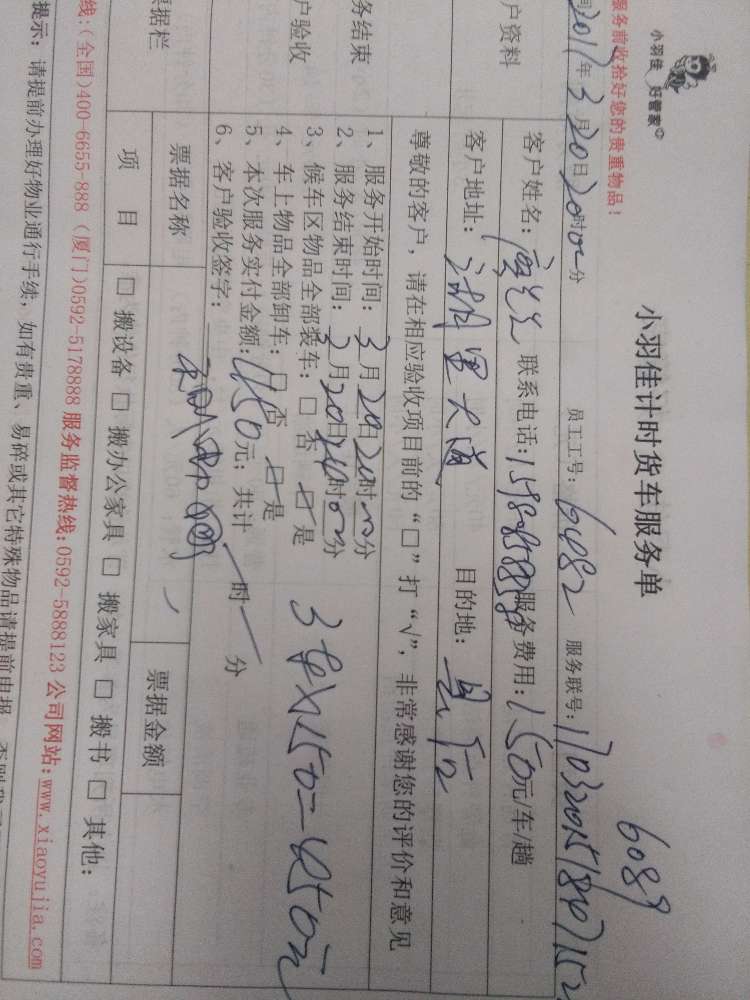 小羽佳 好管家
服务前收拾好您的贵重物品！
小羽佳计时货车服务单
6089
间2017年3月20日20时00分 员工工号：6482 服务联号：
户资料
客户姓名： 联系电话： 服务费用：150元/车/趟
客户地址： 大道 目的地：
尊敬的客户，请在相应验收项目前的“□”打“√”，非常感谢您的评价和意见
务结束
户验收
1、服务开始时间：3月20日20时00分
2、服务结束时间：3月20日 时00分
3、候车区物品全部装车：□ 否 □ 是
4、车上物品全部卸车：□ 否 □ 是
5、本次服务实付金额：450元；共计 时 分
3车×150=450元
6、客户验收签字：
票据栏
票据名称 票据金额
项 目 □ 搬设备 □ 搬办公家具 □ 搬家具 □ 搬书 □ 其他：
线：（全国）400-6655-888 （厦门）0592-5178888 服务监督热线：0592-5888123 公司网站：www.xiaoyujia.com
提示：请提前办理好物业通行手续，如有贵重、易碎或其它特殊物品请提前申报，否则